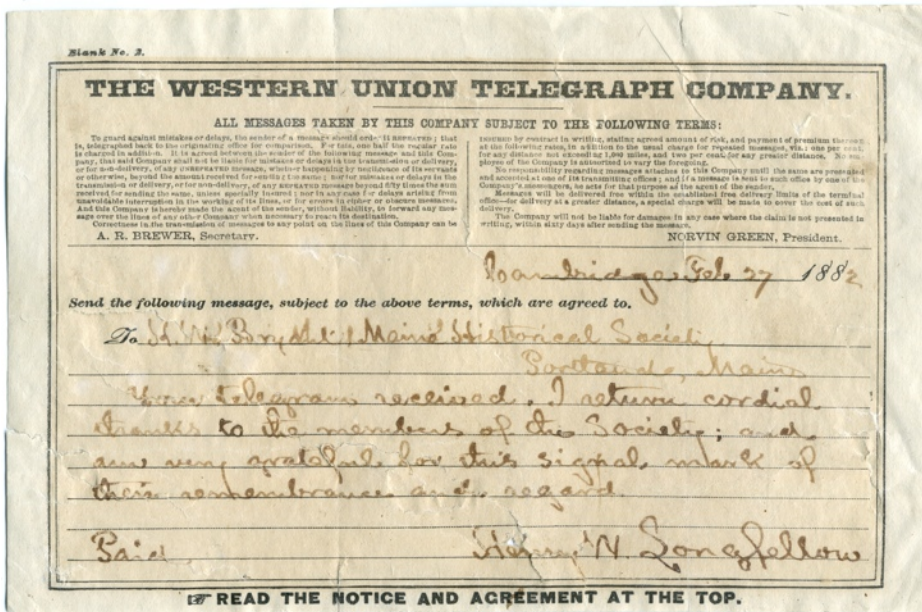 Blank No. 2.
THE WESTERN UNION TELEGRAPH COMPANY.
ALL MESSAGES TAKEN BY THIS COMPANY SUBJECT TO THE FOLLOWING TERMS:
To guard against mistakes or delays, the sender of a message should order it REPEATED; that
is, telegraphed back to the originating office for comparison. For this, one half the regular rate
is charged in addition. It is agreed between the sender of the following message and this Com-
pany, that said Company shall not be liable for mistakes or delays in the transmission or delivery,
or for non-delivery, of any UNREPEATED message, whether happening by negligence of its servants
or otherwise, beyond the amount received for sending the same; nor for mistakes or delays in the
transmission or delivery, or for non-delivery, of any REPEATED message beyond fifty times the sum
received for sending the same, unless specially insured; nor in any case for delays arising from
unavoidable interruption in the working of its lines, or for errors in cipher or obscure messages.
And this Company is hereby made the agent of the sender, without liability, to forward any mes-
sage over the lines of any other Company when necessary to reach its destination.
Correctness in the transmission of messages to any point on the lines of this Company can be
A. R. BREWER, Secretary.
INSURED by contract in writing, stating agreed amount of risk, and payment of premium thereon
at the following rates, in addition to the usual charge for repeated messages, viz.: one per cent.
for any distance not exceeding 1,000 miles, and two per cent. for any greater distance. No em-
ployee of the Company is authorized to vary the foregoing.
No responsibility regarding messages attaches to this Company until the same are presented
and accepted at one of its transmitting offices; and if a message is sent to such office by one of the
Company's messengers, he acts for that purpose as the agent of the sender.
Messages will be delivered free within the established free delivery limits of the terminal
office—for delivery at a greater distance, a special charge will be made to cover the cost of such
delivery.
The Company will not be liable for damages in any case where the claim is not presented in
writing, within sixty days after sending the message.
NORVIN GREEN, President.
Cambridge, Feb 27 1882
Send the following message, subject to the above terms, which are agreed to.
To H. W. Maine Historical Society
Portland, Maine
Your telegram received. I return cordial
thanks to the members of the Society; and
am very grateful for this signal mark of
their remembrance and regard.
Paid Henry W. Longfellow
☞ READ THE NOTICE AND AGREEMENT AT THE TOP.